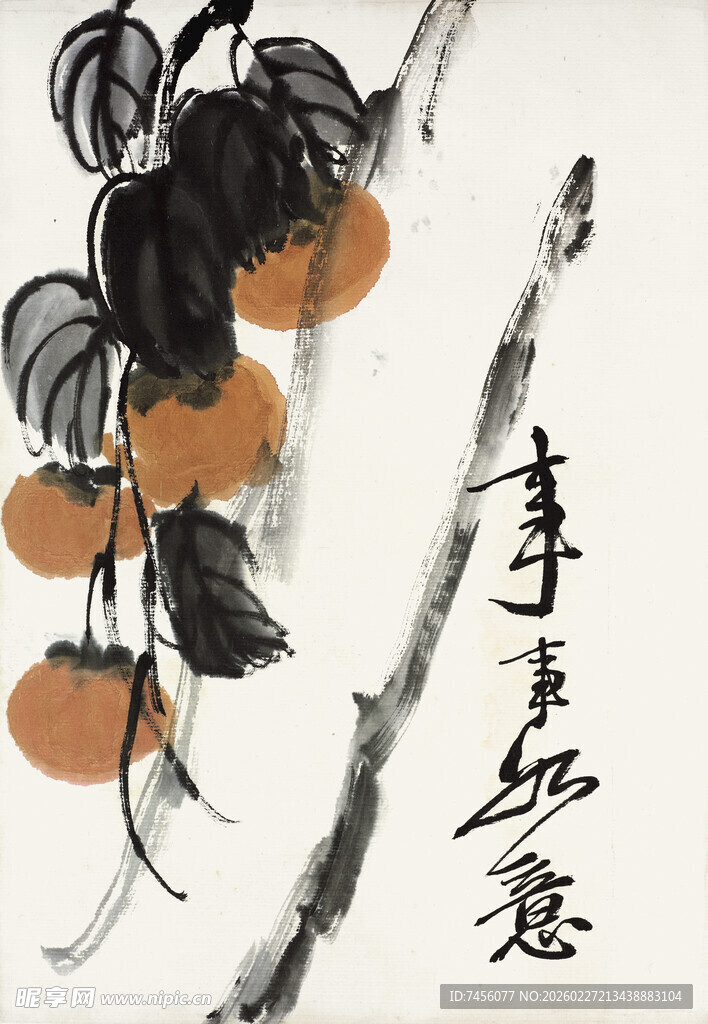 事事如意
昵享网 www.nipic.cn
ID:7456077 NO:20260227213438883104